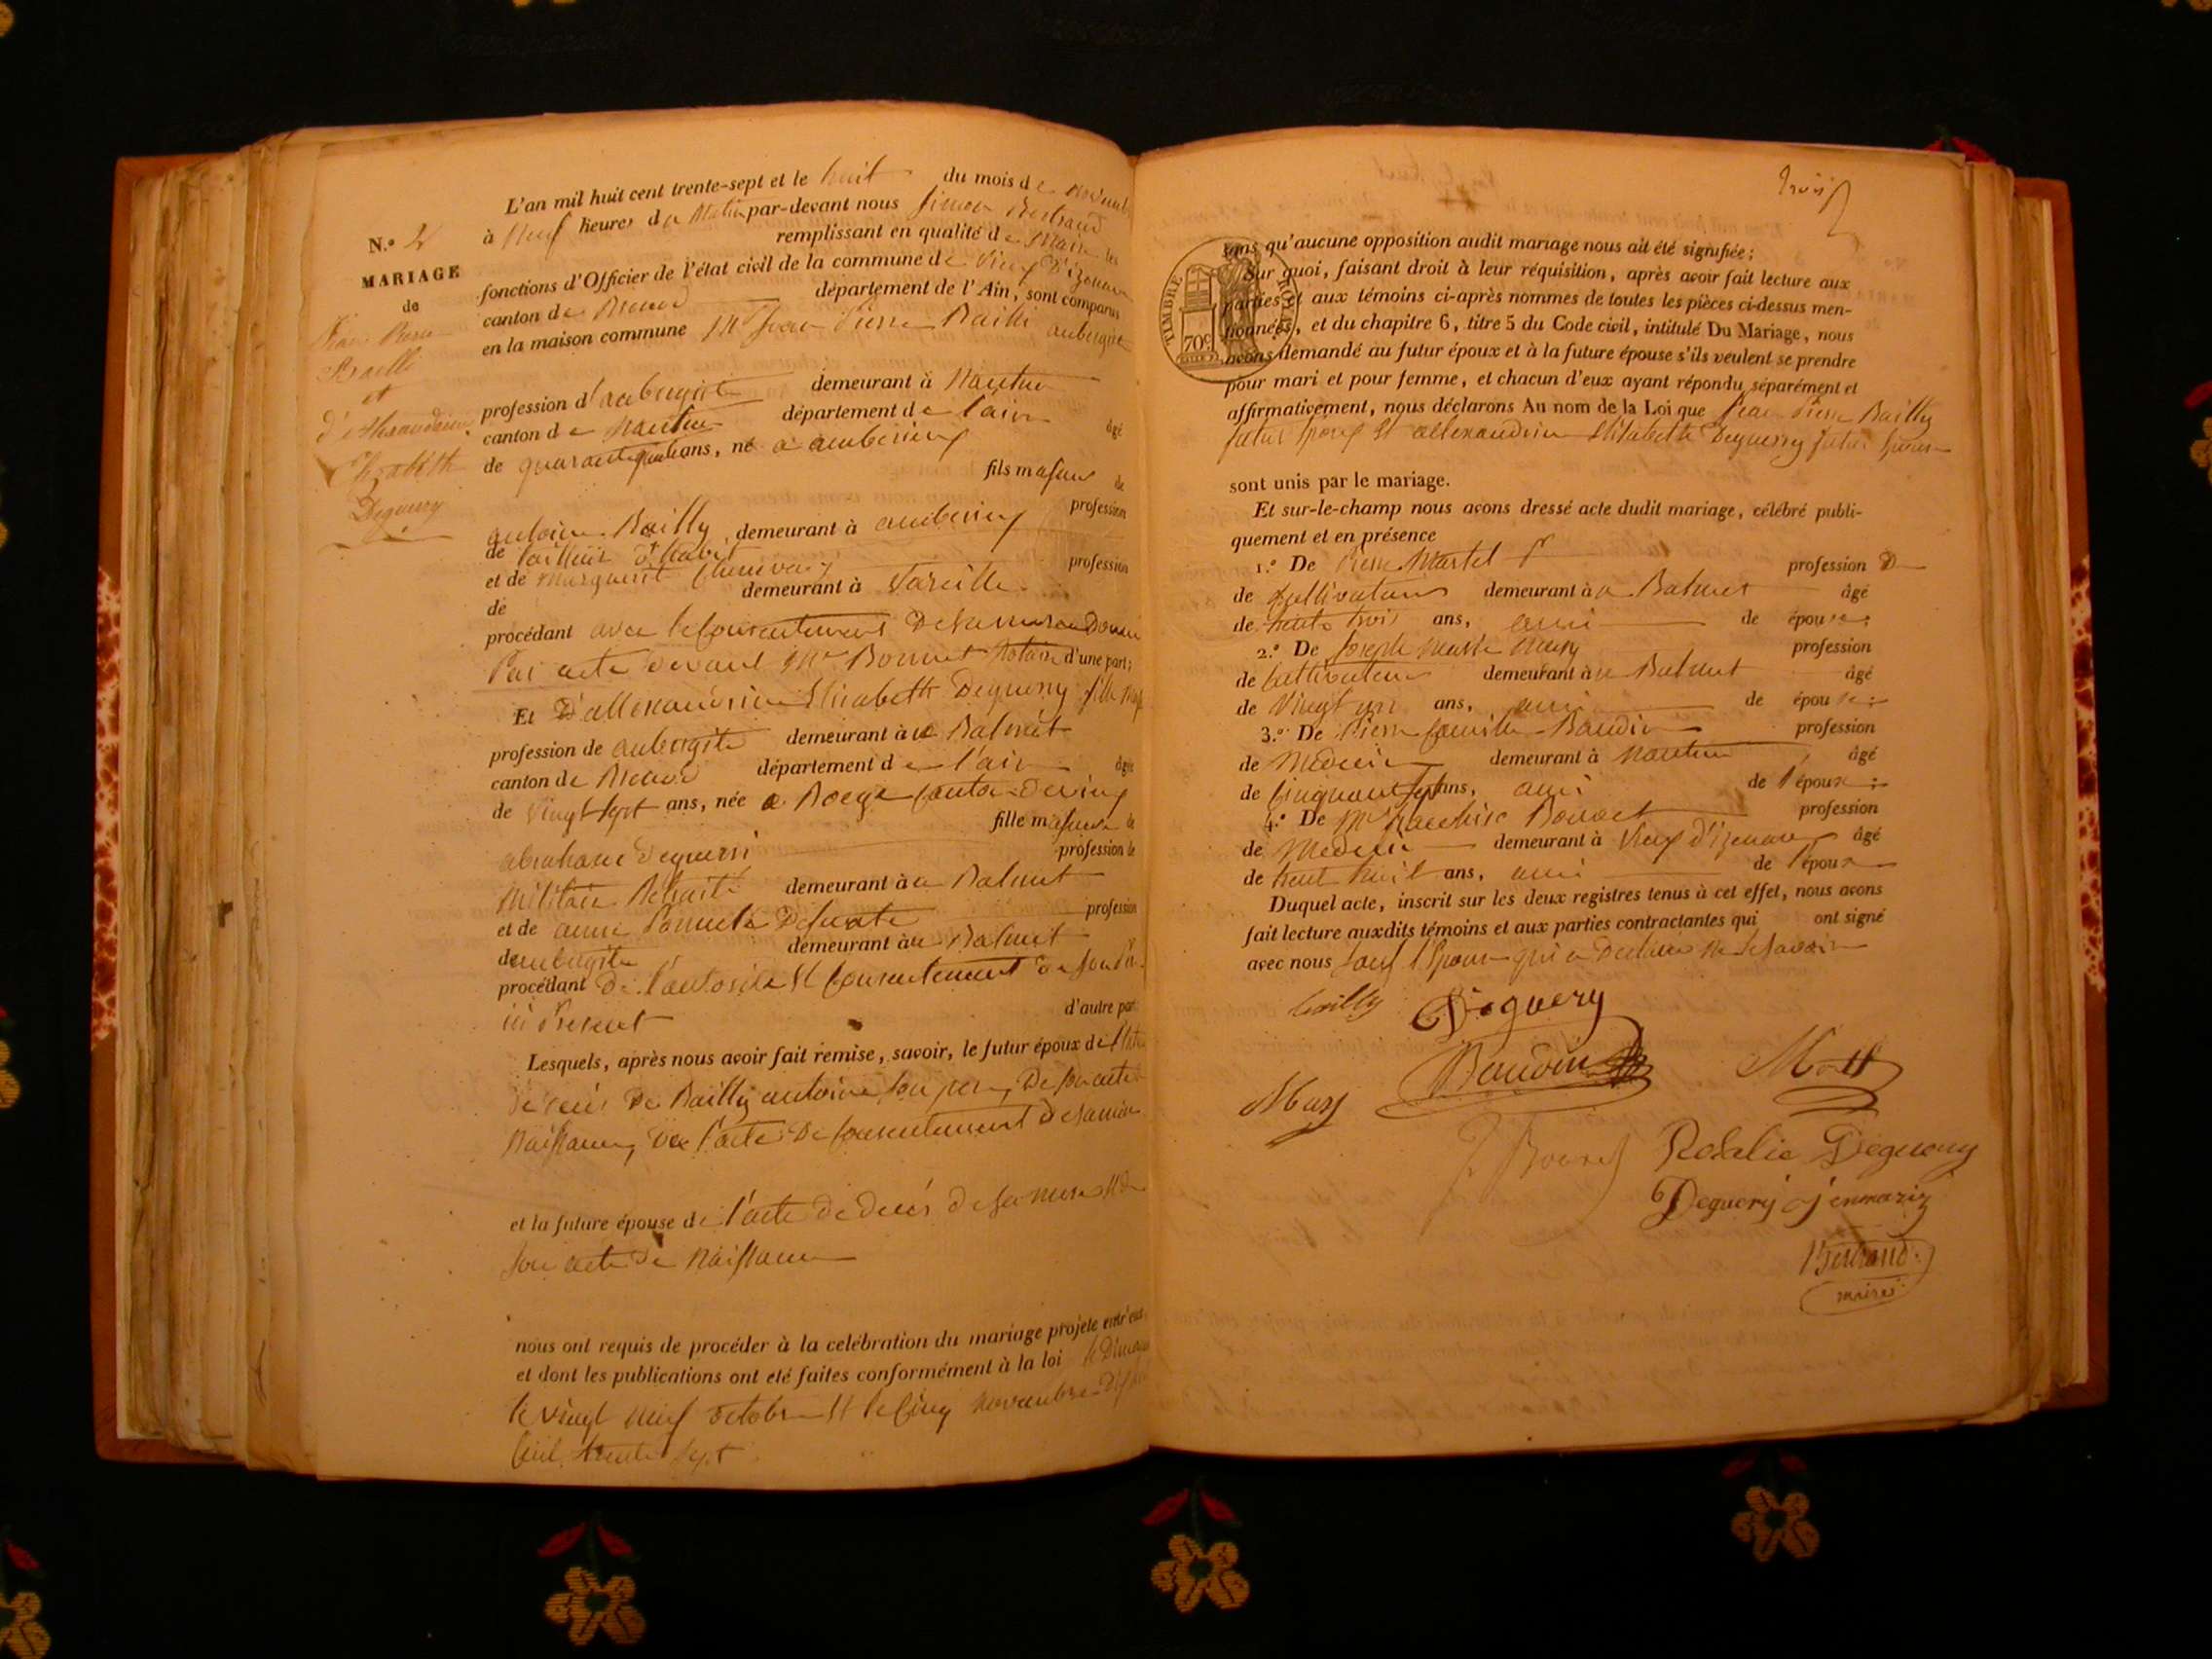 N.º 4
MARIAGE
de
Jean Pierre
Bailli
et
d'Alexandrine
Elizabeth
Deguerry
L'an mil huit cent trente-sept et le huit du mois de novembre
à Neuf heures du Matin par-devant nous Simon Bertrand
remplissant en qualité de Maire les
fonctions d'Officier de l'état civil de la commune de Vieux d'izenave
canton de Brenod département de l'Ain, sont comparus
en la maison commune Mr Jean Pierre Bailli aubergiste
profession d'aubergiste demeurant à Nantua
canton de Nantua département de l'ain âgé
de quarante ans, né à
fils majeur de
antoine Bailly demeurant à profession
de tailleur d'habit
et de Marguerit profession
de demeurant à
procédant avec le Consentement De sa mere Donné
Par acte devant Mr Bonnet Notaire d'une part;
Et D'allexandrine Elisabeth Deguerry fille maj
profession de aubergiste demeurant à a Balmet
canton de Brenod département de l'ain âgée
de vingt sept ans, née a canton
fille majeure de
abraham Deguerri profession de
Militaire Retraité demeurant à a Balmet
et de anne Defunte profession
de aubergiste demeurant à a Balmet
procédant De l'autorité et Consentement de son
ici Present d'autre part
Lesquels, après nous avoir fait remise, savoir, le futur époux de l'acte
de decés De Bailly antoine son pere, De son acte
Naissance, de l'acte De Consentement De sa mère
et la future épouse de l'acte de decés de sa mere et de
son acte de Naissance
nous ont requis de procéder à la celébration du mariage projeté entr'eux
et dont les publications ont été faites conformément à la loi le Dimanche
le vingt neuf octobre et le cinq Novembre
Cent trente sept
trois
TIMBRE ROYAL
70c
sans qu'aucune opposition audit mariage nous ait été signifiée;
Sur quoi, faisant droit à leur réquisition, après avoir fait lecture aux
parties et aux témoins ci-après nommés de toutes les pièces ci-dessus men-
tionnées, et du chapitre 6, titre 5 du Code civil, intitulé Du Mariage, nous
avons demandé au futur époux et à la future épouse s'ils veulent se prendre
pour mari et pour femme, et chacun d'eux ayant répondu séparément et
affirmativement, nous déclarons Au nom de la Loi que Jean Pierre Bailly
futur Epoux et allexandrine Elisabeth Deguerry futur Epouse
sont unis par le mariage.
Et sur-le-champ nous avons dressé acte dudit mariage, célébré publi-
quement et en présence
1.º De Pierre Martel profession D
de Cultivateur demeurant à a Balmet âgé
de trente trois ans, ami de épouse;
2.º De Joseph Marie Mary profession
de Cultivateur demeurant à a Balmet âgé
de Vingt un ans, ami de épouse;
3.º De Pierre Camille Baudin profession
de Médecin demeurant à Nantua âgé
de Cinquante sept ans, ami de l'époux;
4.º De Mr Bonnet profession
de Médecin demeurant à Vieux d'izenave âgé
de trent huit ans, ami de l'époux
Duquel acte, inscrit sur les deux registres tenus à cet effet, nous avons
fait lecture auxdits témoins et aux parties contractantes qui ont signé
avec nous sauf l'Epouse qui a Déclaré ne le savoir
bailly Deguery
Baudin
Mary
Rosalie Deguerry
Deguery jenmarie
Bertrand
maire